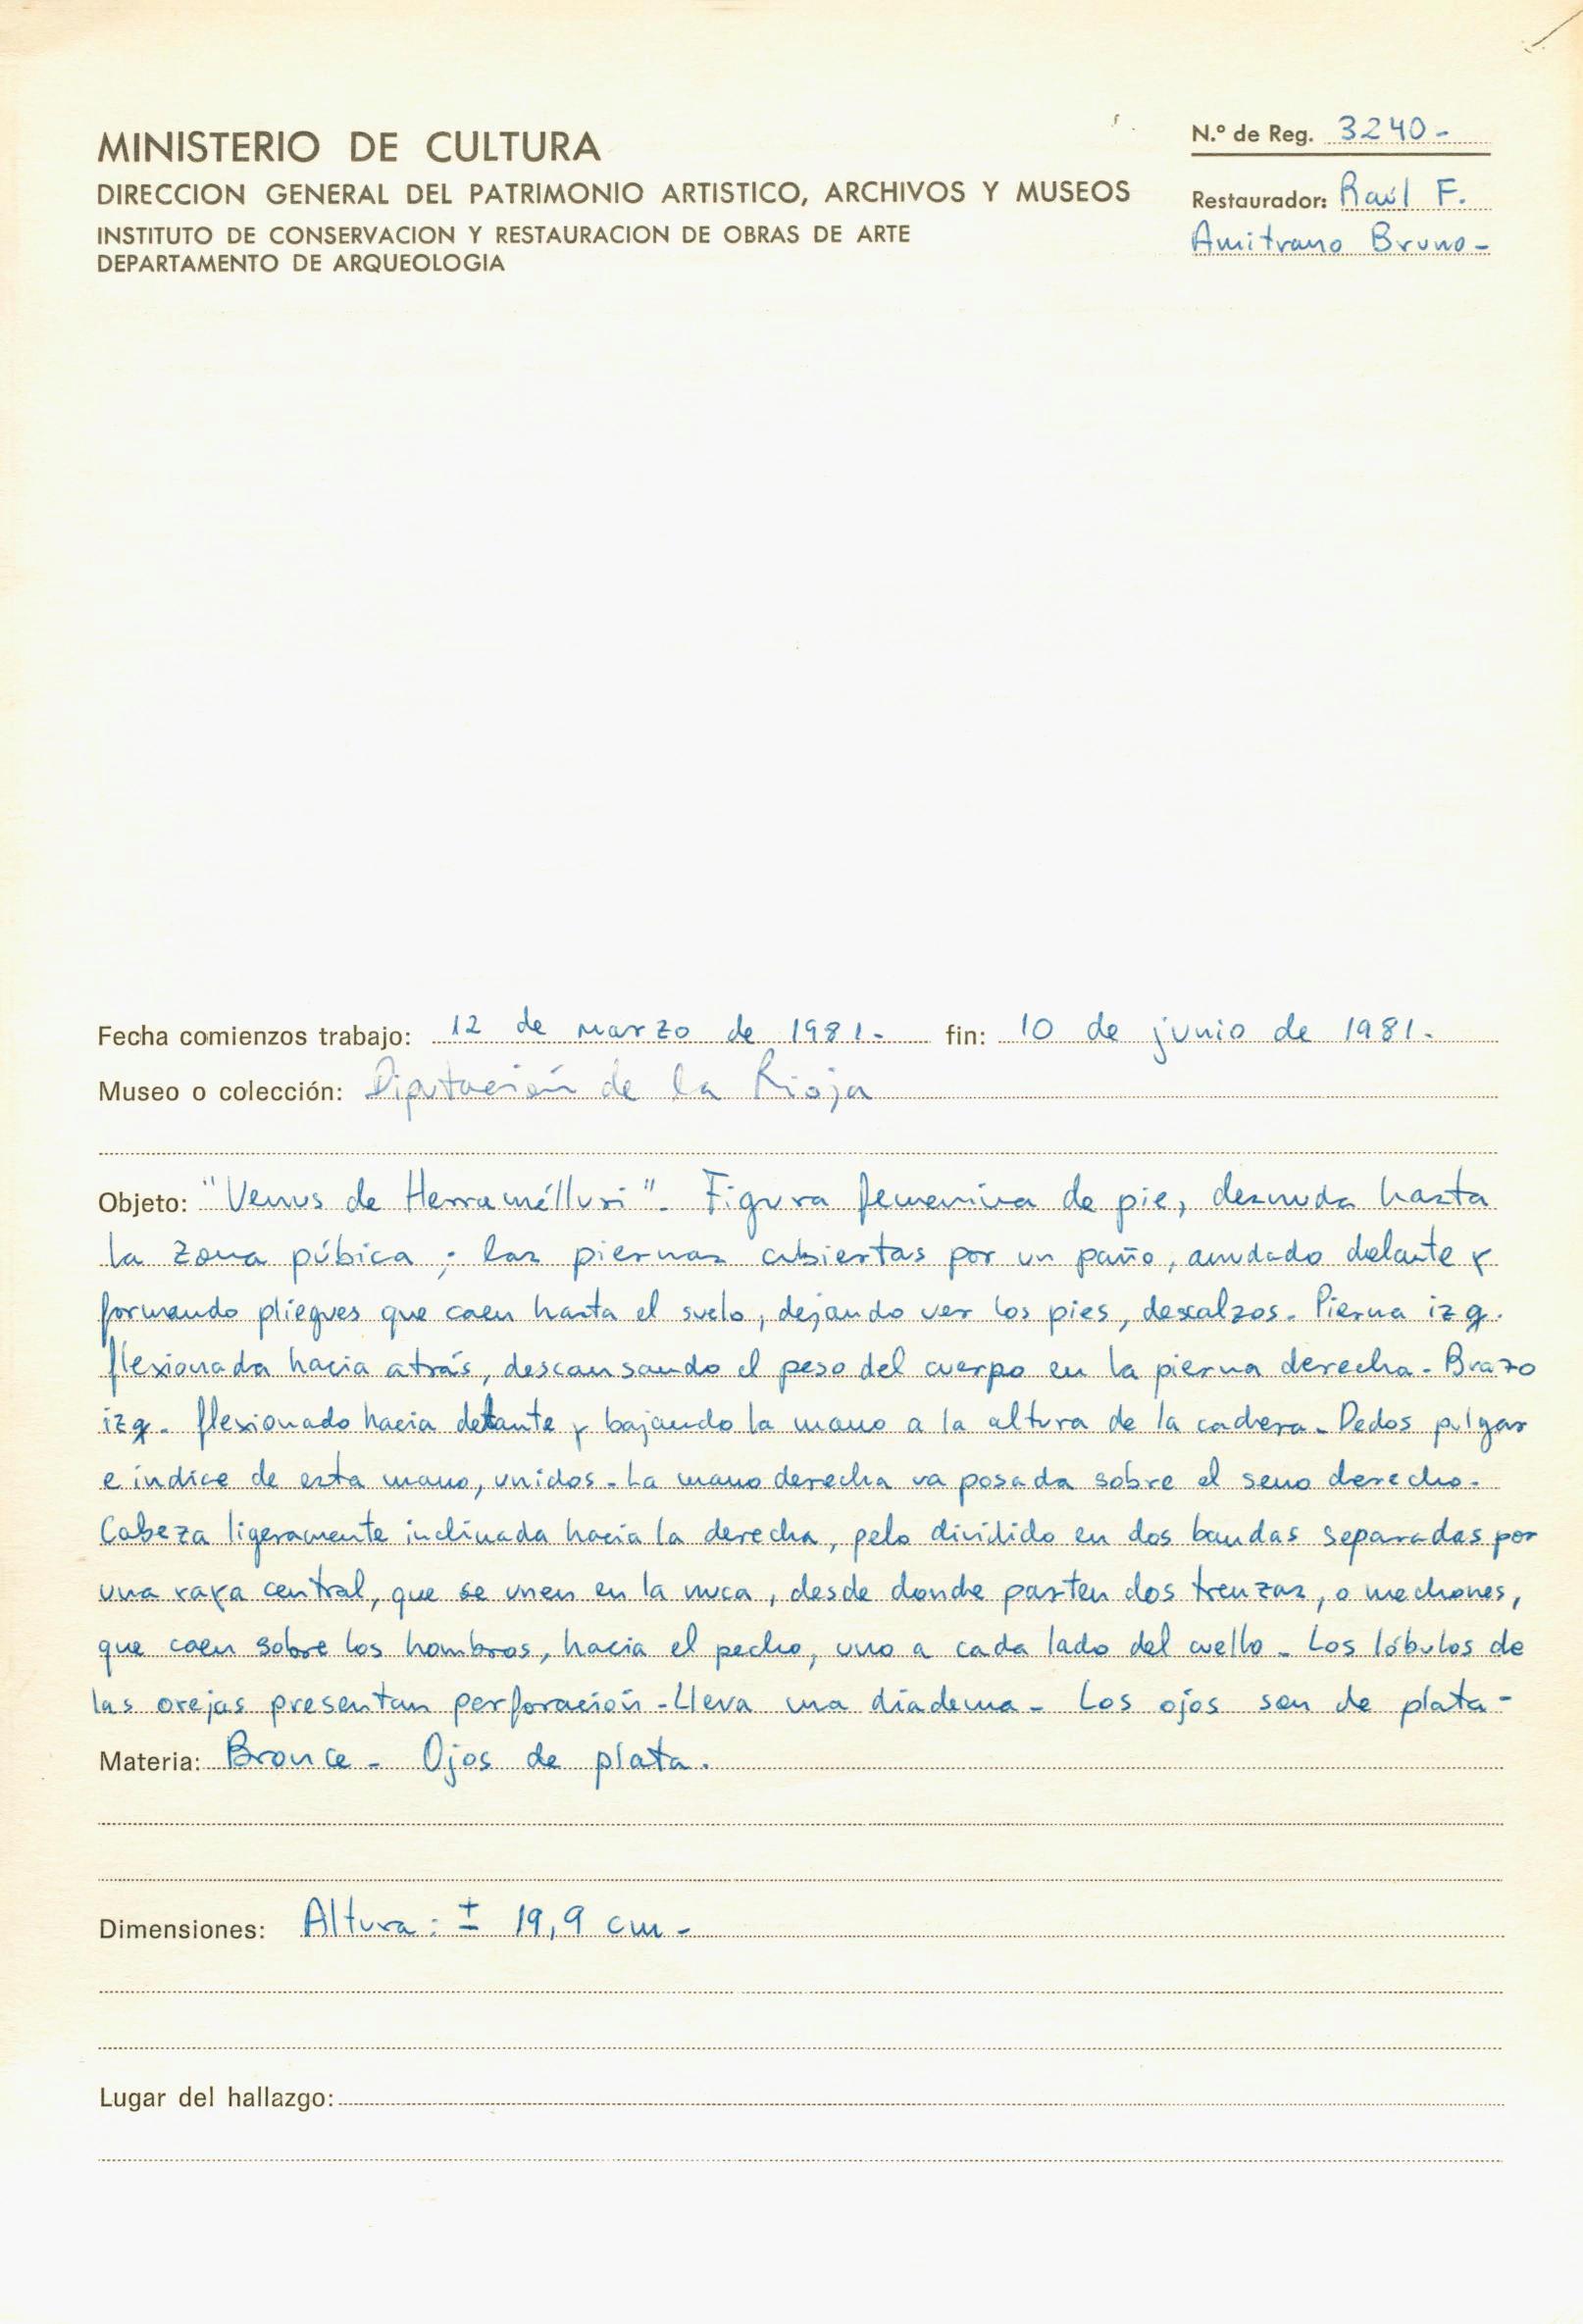 MINISTERIO DE CULTURA
DIRECCION GENERAL DEL PATRIMONIO ARTISTICO, ARCHIVOS Y MUSEOS
INSTITUTO DE CONSERVACION Y RESTAURACION DE OBRAS DE ARTE
DEPARTAMENTO DE ARQUEOLOGIA
N.º de Reg. 3240-
Restaurador: Raúl F.
Amitrano Bruno-
Fecha comienzos trabajo: 12 de marzo de 1981.- fin: 10 de junio de 1981.-
Museo o colección: Diputación de la Rioja
Objeto: "Venus de Herramélluri". Figura femenina de pie, desnuda hasta
la zona púbica; las piernas cubiertas por un paño, anudado delante y
formando pliegues que caen hasta el suelo, dejando ver los pies, descalzos. Pierna izq.
flexionada hacia atrás, descansando el peso del cuerpo en la pierna derecha - Brazo
izq. flexionado hacia delante y bajando la mano a la altura de la cadera. Dedos pulgar
e índice de esta mano, unidos - La mano derecha va posada sobre el seno derecho.
Cabeza ligeramente inclinada hacia la derecha, pelo dividido en dos bandas separadas por
una raya central, que se unen en la nuca, desde donde parten dos trenzas, o mechones,
que caen sobre los hombros, hacia el pecho, uno a cada lado del cuello - Los lóbulos de
las orejas presentan perforación - Lleva una diadema - Los ojos son de plata -
Materia: Bronce - Ojos de plata.
Dimensiones: Altura: ± 19,9 cm -
Lugar del hallazgo: